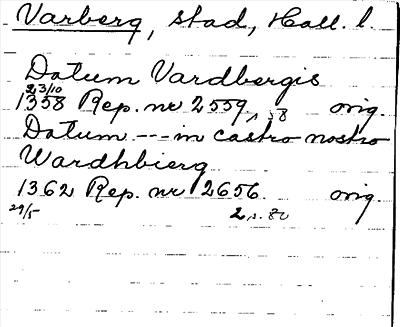 Varberg, stad, Hall. l.
Datum Vardbergis
23/10
1358 Rep. nr 2559, s 58 orig.
Datum --- in castro nostro
Wardhbierg
1362 Rep. nr 2656. orig.
29/5 2, s. 80